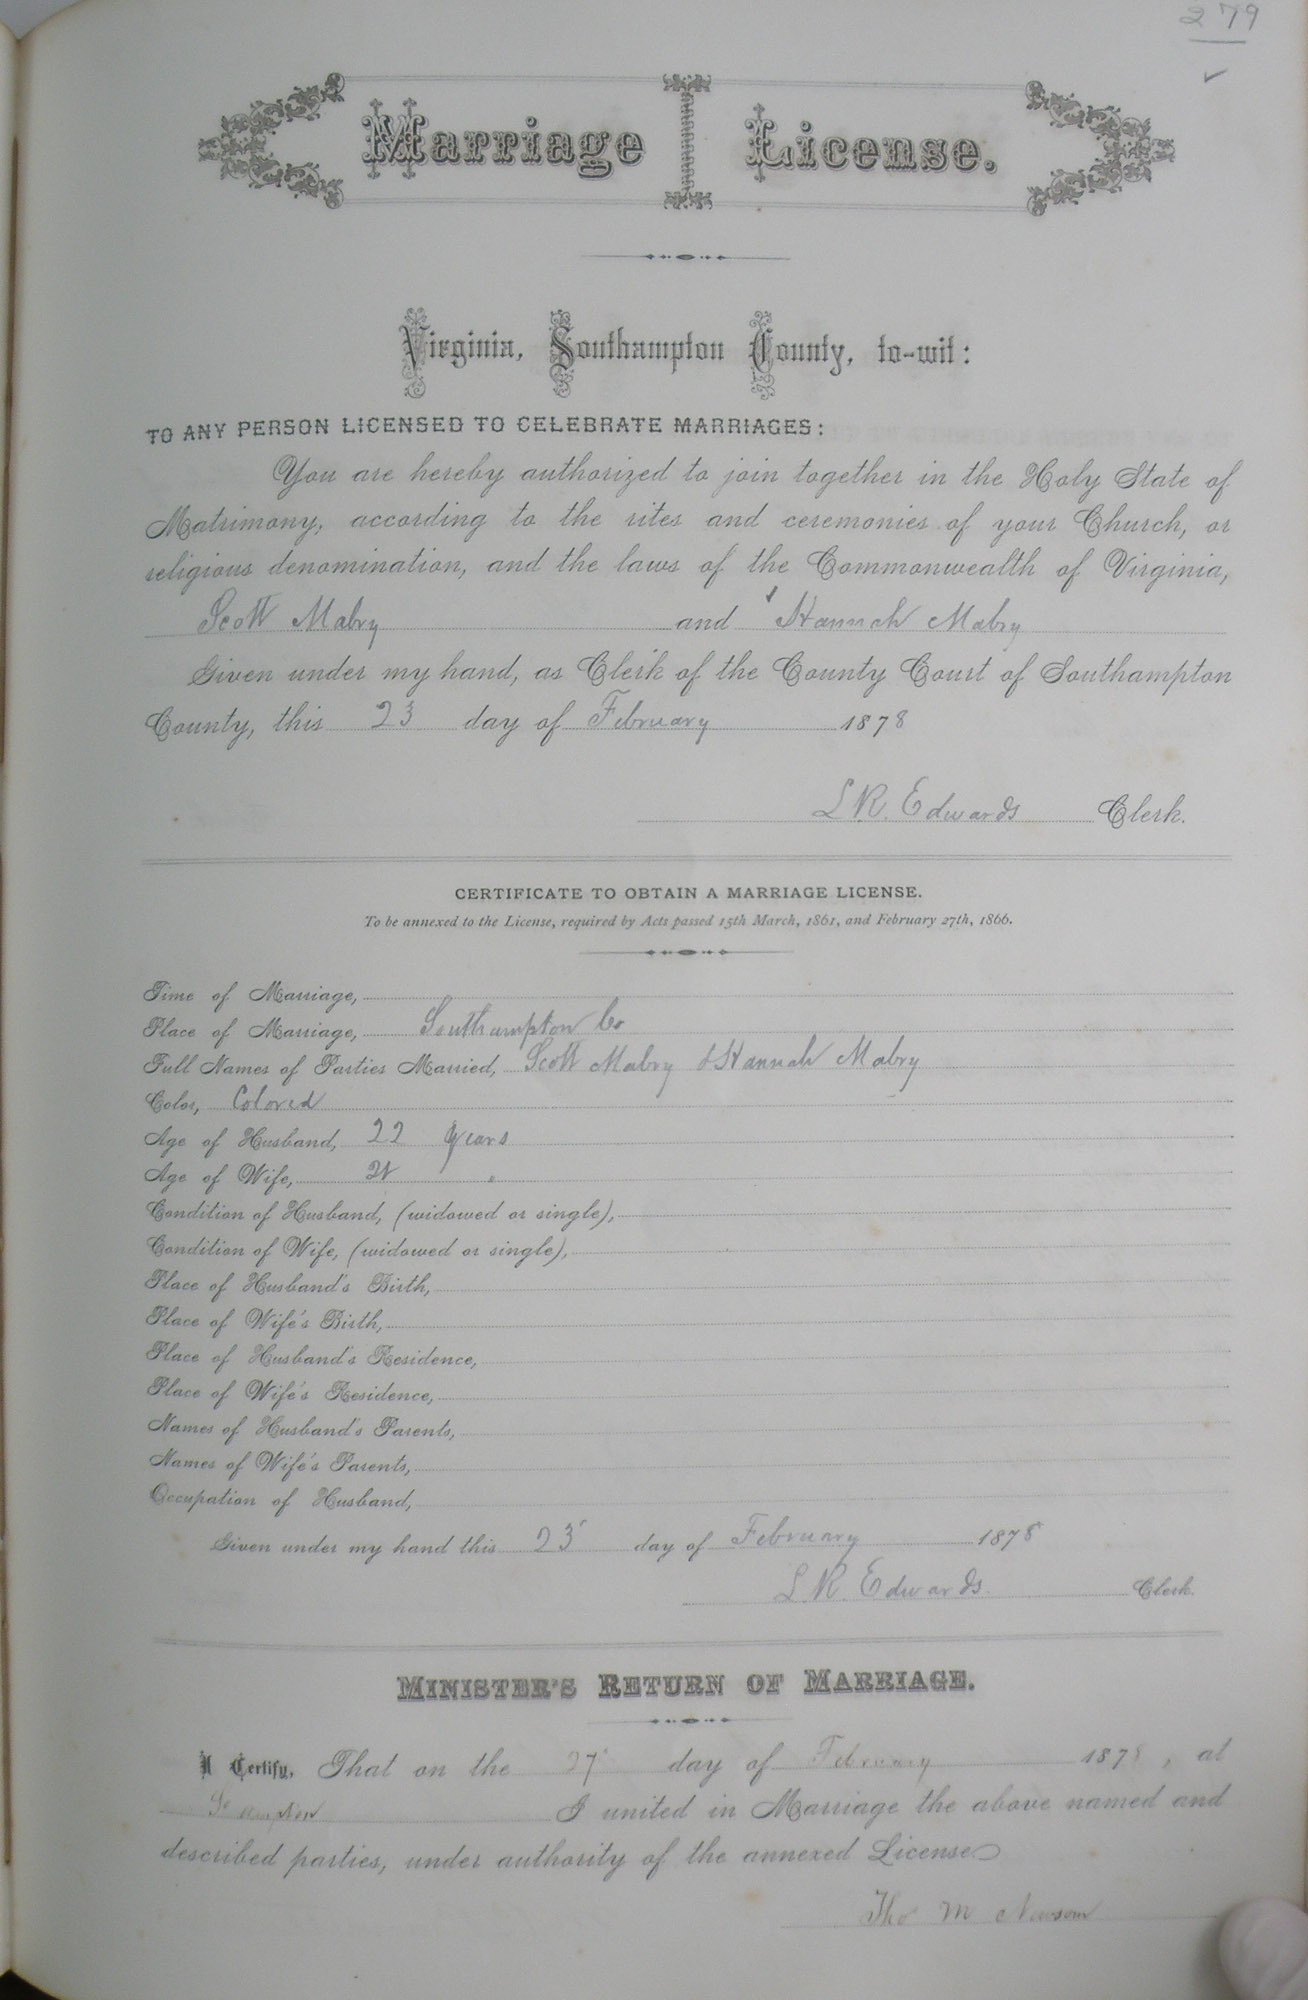 279
Marriage License.
Virginia, Southampton County, to-wit:
TO ANY PERSON LICENSED TO CELEBRATE MARRIAGES:
You are hereby authorized to join together in the Holy State of
Matrimony, according to the rites and ceremonies of your Church, or
religious denomination, and the laws of the Commonwealth of Virginia,
Scott Mabry and Hannah Mabry
Given under my hand, as Clerk of the County Court of Southampton
County, this 23 day of February 1878
L R. Edwards Clerk.
CERTIFICATE TO OBTAIN A MARRIAGE LICENSE.
To be annexed to the License, required by Acts passed 15th March, 1861, and February 27th, 1866.
Time of Marriage,
Place of Marriage, Southampton Co
Full Names of Parties Married, Scott Mabry & Hannah Mabry
Color, Colored
Age of Husband, 22 years
Age of Wife, 21 "
Condition of Husband, (widowed or single),
Condition of Wife, (widowed or single),
Place of Husband's Birth,
Place of Wife's Birth,
Place of Husband's Residence,
Place of Wife's Residence,
Names of Husband's Parents,
Names of Wife's Parents,
Occupation of Husband,
Given under my hand this 23 day of February 1878
L R. Edwards. Clerk.
MINISTER'S RETURN OF MARRIAGE.
I Certify, That on the 27 day of February 1878, at
I united in Marriage the above named and
described parties, under authority of the annexed License
Tho M Newsom